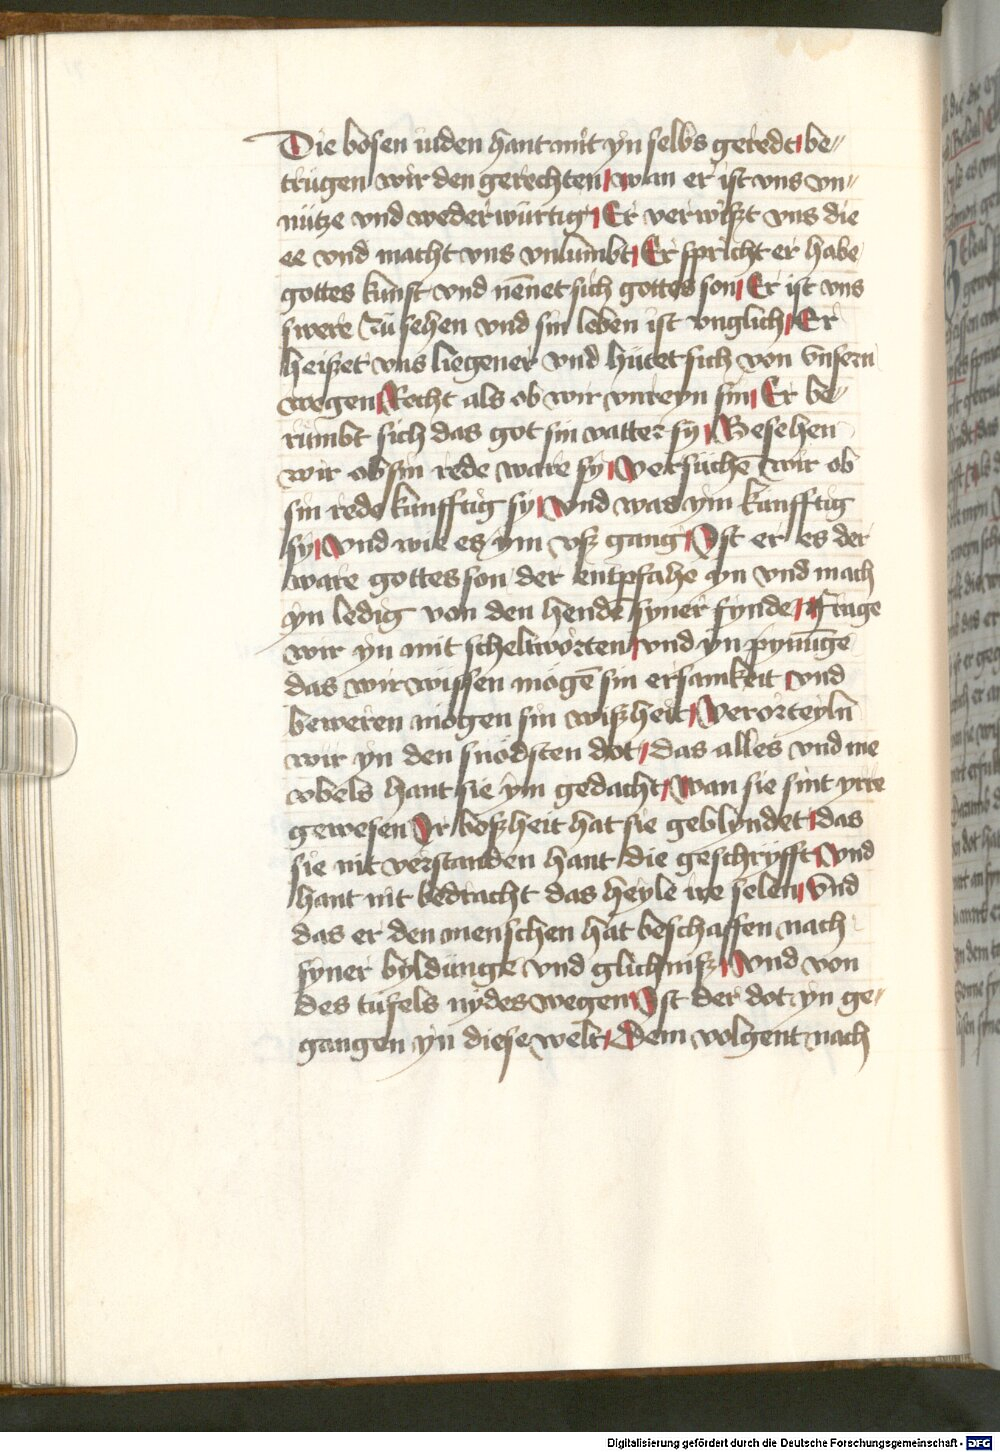 Die bosen iuden hant mit yn selbs geredt be〃
trugen wir den gerechten wan er ist vns vn〃
nütze vnd wederwürtig Er verwißt vns die
ee vnd macht vns vnlumbt Er spricht er habe
gottes kunst vnd nēnet sich gottes son Er ist vns
swere zü sehen vnd sin leben ist vnglich Er
heißet vns liegener vnd hütet sich von vnsern
wegen Recht als ob wir vnreyn sin Er be〃
rümbt sich das got sin vatter sÿ Besehen
wir ob sin rede ware sy Versüchē wir ob
sin rede kunfftig sy Vnd was ym kunfftig
sy Vnd wie es ym vß gang Ist er es der
ware gottes son der entpfahe yn vnd mach
yn ledig von den hendē syner fynde Frage
wir yn mit scheltworten vnd yn pynigē
das wir wissen mögē sin ersamkeit vnd
beweren mögen sin wißheit Verorteyln
wir yn den snödsten dot das alles vnd me
vbels hant sie ym gedacht Wan sie sint yrre
gewesen Ir boßheit hat sie geblyndet das
sie nit verstanden hant die geschryfft Vnd
hant nit bedracht das heyle ire selen Vnd
das er den menschen hat beschaffen nach
syner byldunge vnd glichniß Vnd von
des tüfels nydes wegen Ist der dot yn ge〃
gangen yn diese welt Dem volgent nach
Digitalisierung gefördert durch die Deutsche Forschungsgemeinschaft - DFG